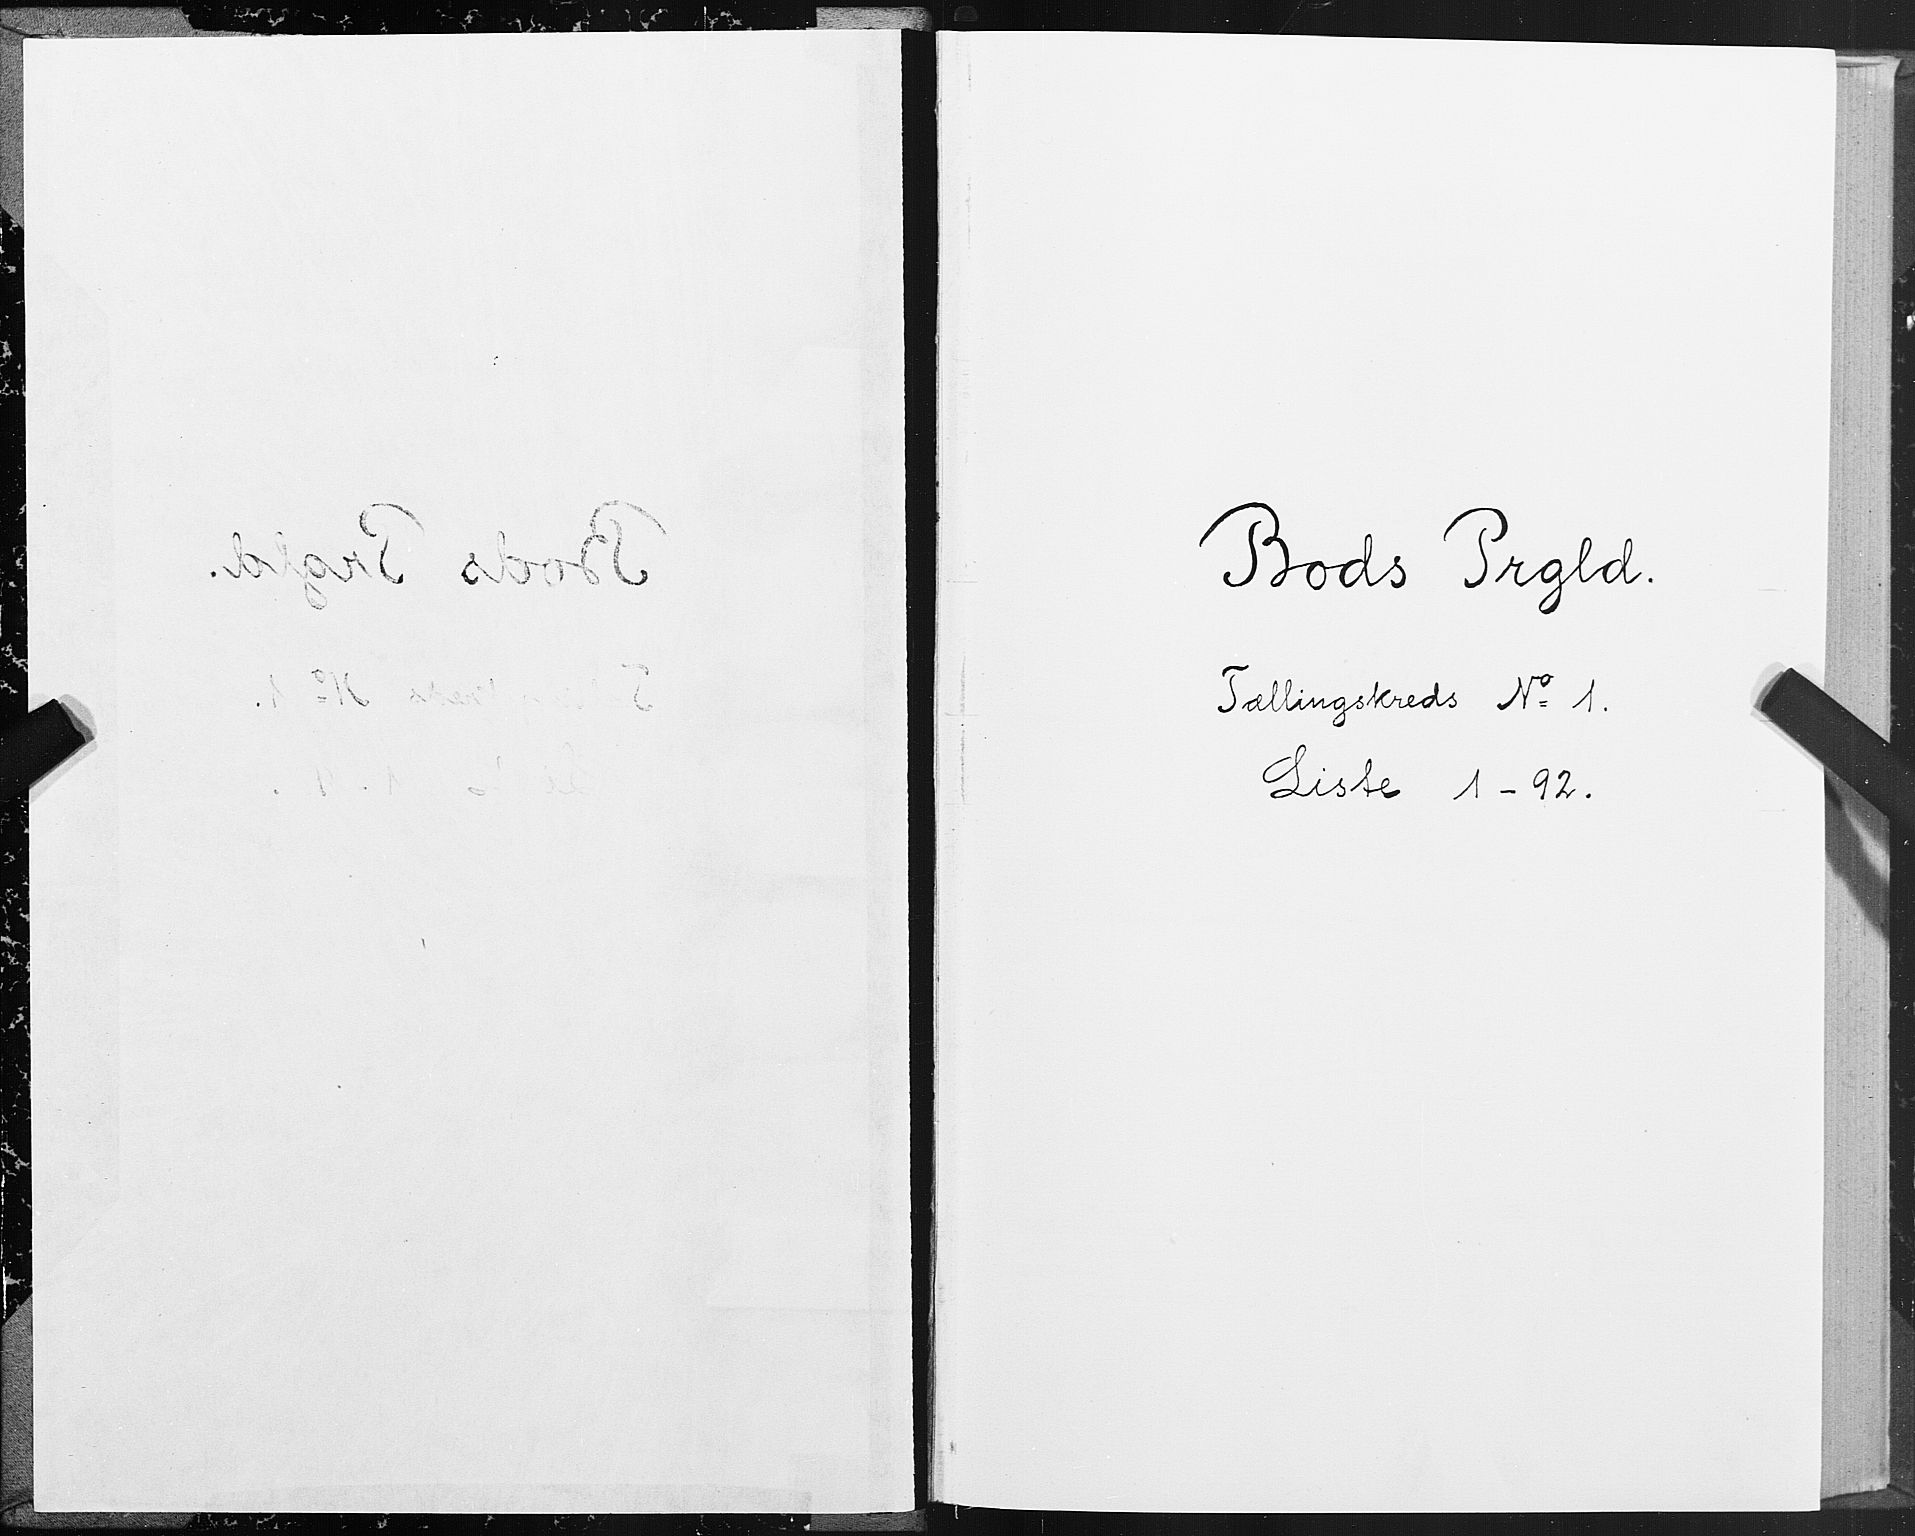 Bods Prgld.
Tællingskreds Nº 1.
Liste 1 - 92.